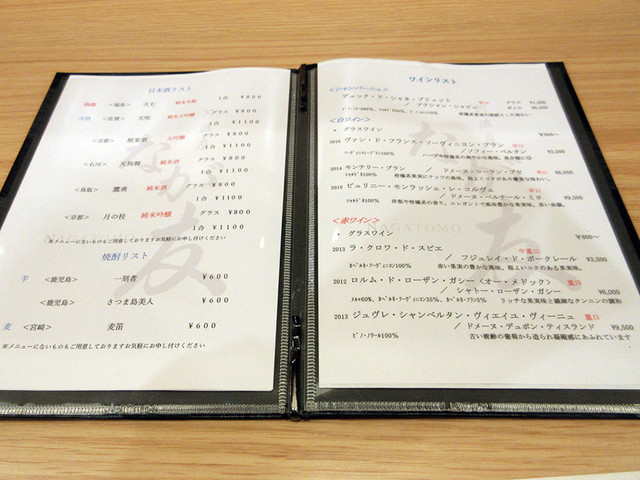 日本酒リスト
<福島> 大七 純米生酛 1合 ¥800
<佐賀> 天吹 純米大吟醸 グラス ¥800
1合 ¥1100
<京都> 聚楽第 大吟醸 グラス ¥800
1合 ¥1100
<石川> 天狗舞 純米酒 グラス ¥800
1合 ¥1100
<鳥取> 鷹勇 純米酒 グラス ¥800
<京都> 月の桂 純米吟醸 グラス ¥800
1合 ¥1100
※メニューにないものもご用意しておりますお気軽にお申し付けください
焼酎リスト
芋 <鹿児島> 一刻者 ¥600
<鹿児島> さつま島美人 ¥600
麦 <宮崎> 麦笛 ¥600
※メニューにないものもご用意しておりますお気軽にお申し付けください
ワインリスト
<シャンパーニュ>
<白ワイン>
・ グラスワイン ¥800～
ヴァン・ド・フランス・ソーヴィニヨン・ブラン 辛口
/ソフィー・ベルタン ¥5,000
2014 モンテリー・ブラン /ドメーヌ・ローラン・ブゼ 辛口
シャルドネ100% 柑橘系果実にナッツの風味、程よくミネラルがある優雅な味わい。 ¥8,000
2015 ピュリニー・モンラッシェ・レ・コルヴェ 辛口
/ ドメーヌ・パルナール・ミヨ ¥9,500
シャルドネ100% 洋梨や柑橘系の香り。エレガントで風味豊かな果実味。長い余韻。
<赤ワイン>
・ グラスワイン ¥800～
2013 ラ・クロワ・ド・スピエ 中重口
/ フジュレイ・ド・ボークレール ¥3,500
カベルネ・ソーヴィニオン100% 赤い果実の豊かな風味。程よいコクのある果実味。
2012 ロルム・ド・ローザン・ガシー<オー・メドック> 重口
/ シャトー・ローザン・ガシー ¥6,000
メルロ60%、カベルネ・ソーヴィニオン35%、カベルネ・フラン5% リッチな果実味と繊細なタンニンの調和
2013 ジュヴレ・シャンベルタン・ヴィエイユ・ヴィーニュ 重口
/ ドメーヌ・デュポン・ティスランド ¥9,500
ピノ・ノワール100% 古い樹齢の葡萄から造られ凝縮感にあふれています
NAGATOMO